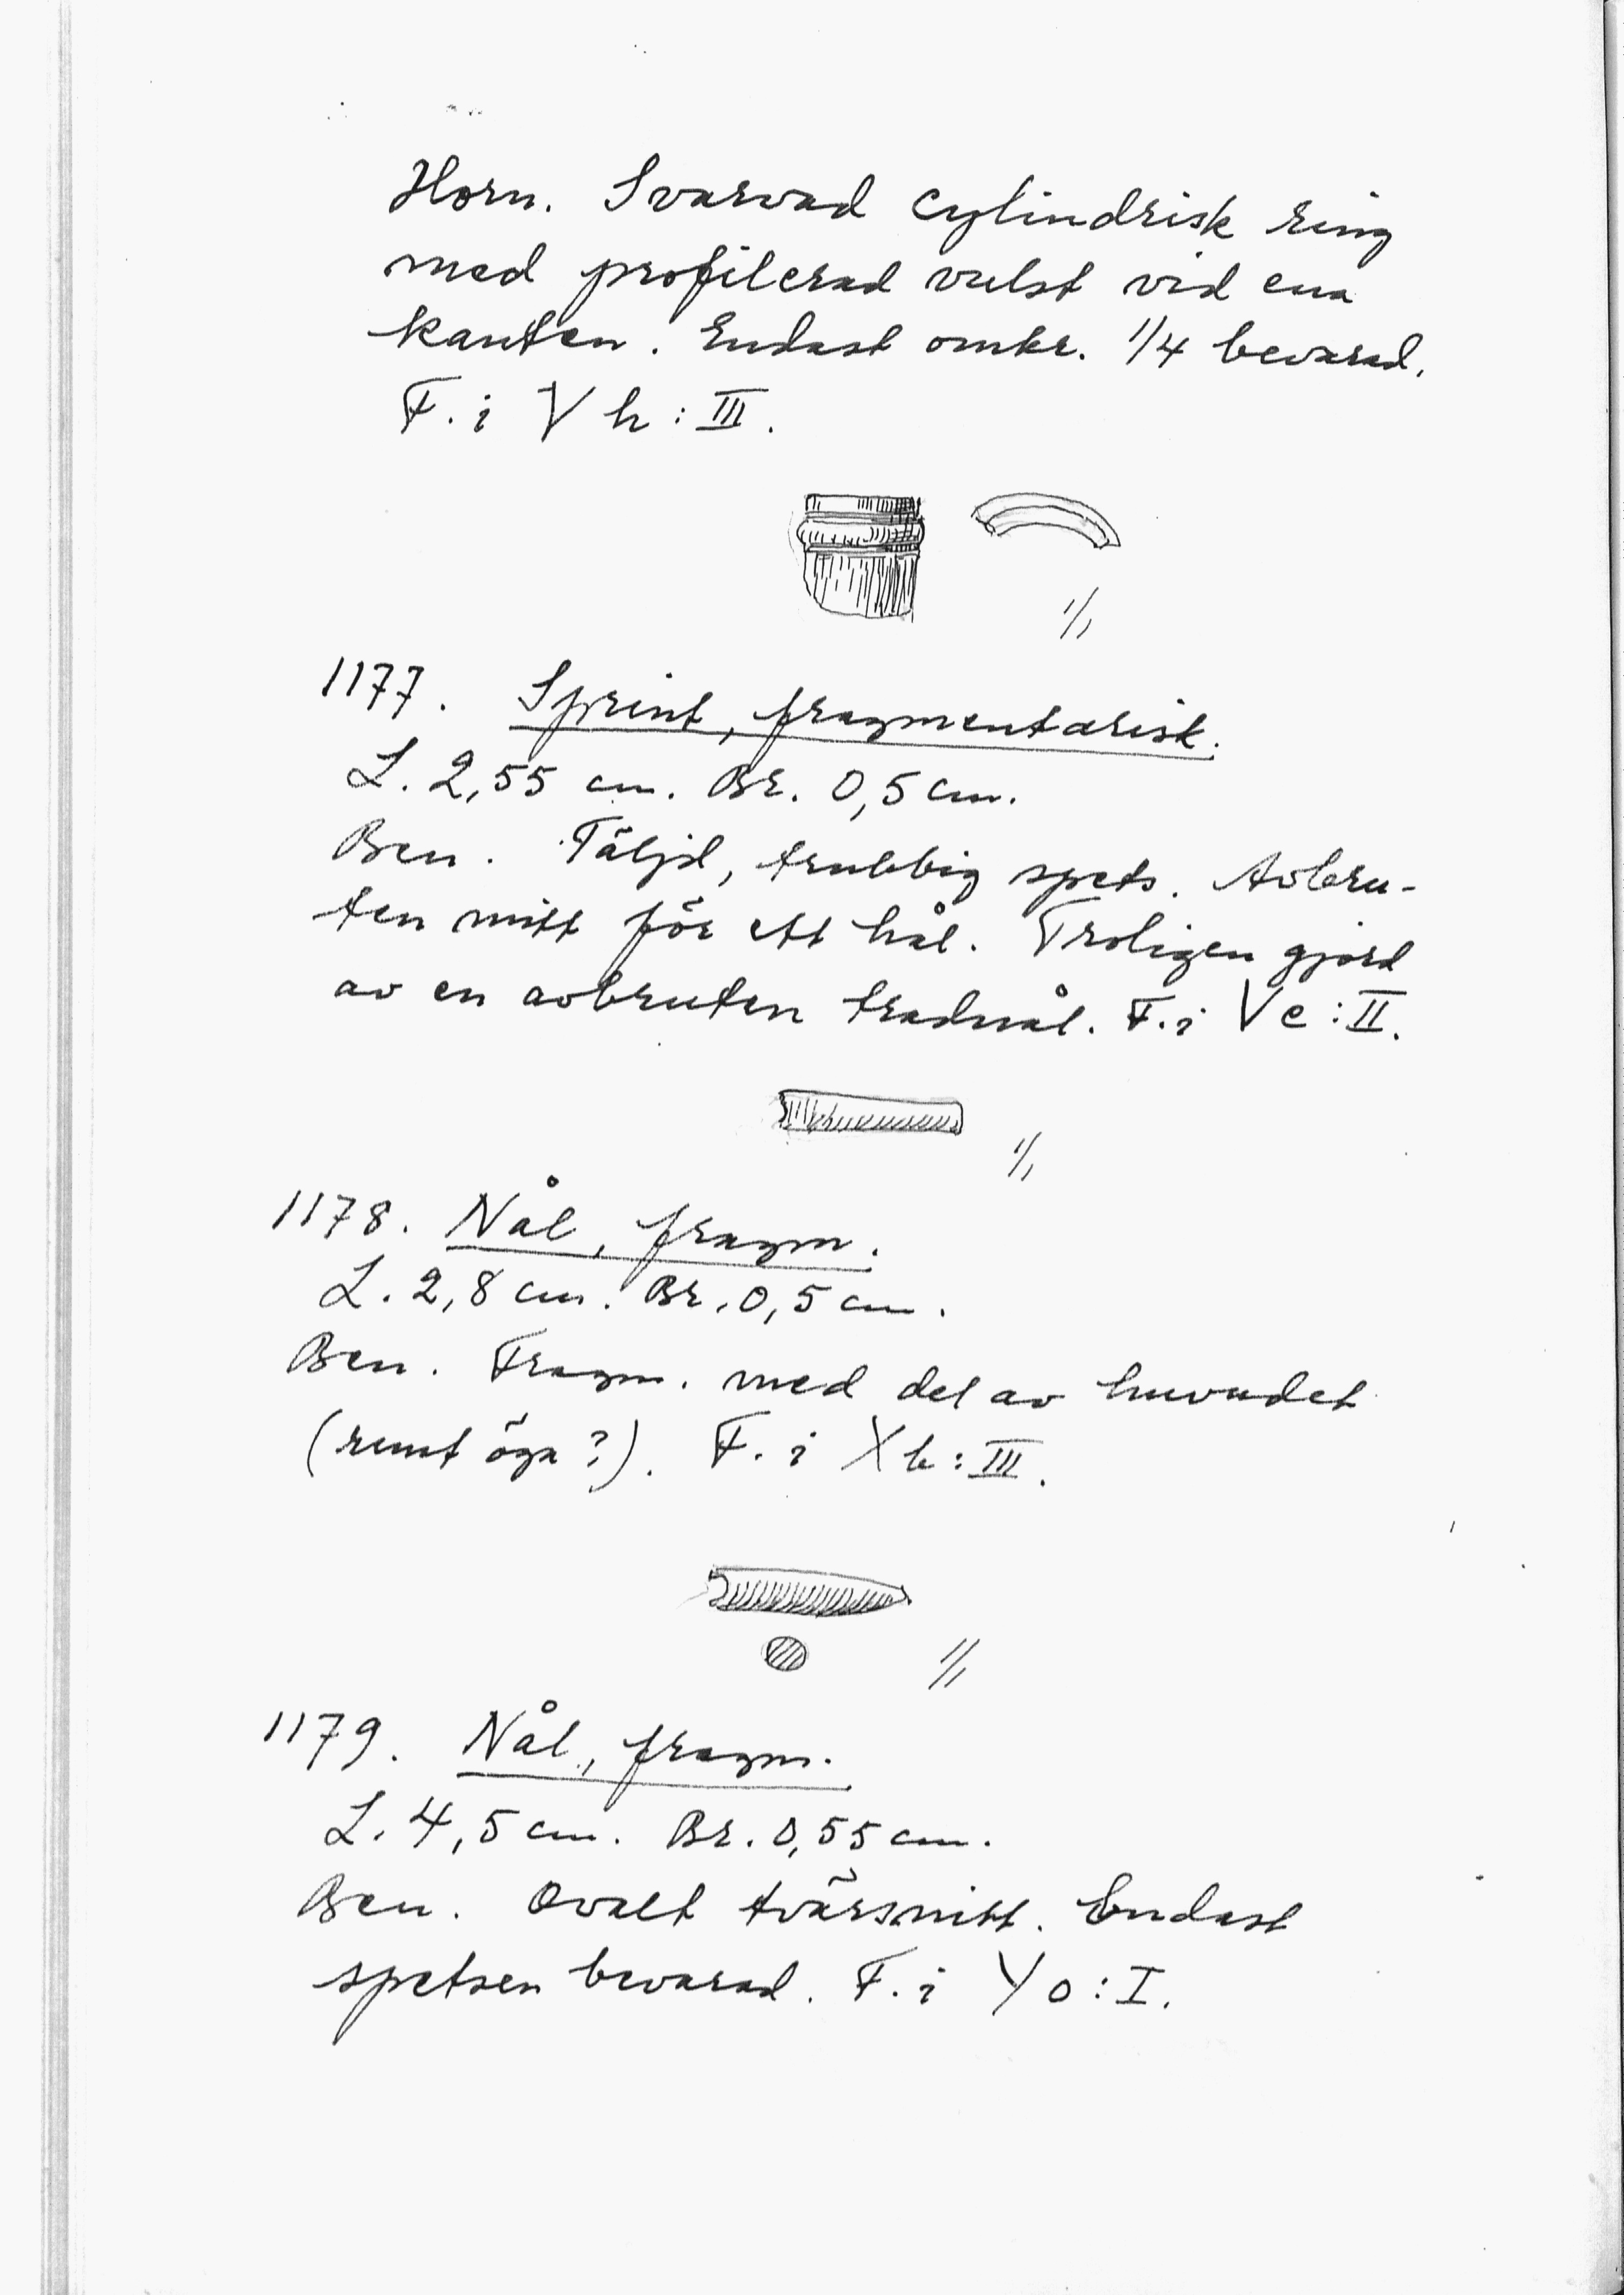 Horn. Svarvad cylindrisk ring
med profilerad vulst vid ena
kanten. Endast omkr. 1/4 bevarad.
F. i V h : III.
1/1
1177. Sprint, fragmentarisk.
L. 2,55 cm. Br. 0,5 cm.
Ben. Täljd, trubbig spets. Avbru-
ten mitt för ett hål. Troligen gjord
av en avbruten tradnål. F. i V e : II.
1/1
1178. Nål, fragm.
L. 2,8 cm. Br. 0,5 cm.
Ben. Fragm. med del av huvudet
(runt öga?). F. i X h : III.
1/1
1179. Nål, fragm.
L. 4,5 cm. Br. 0,55 cm.
Ben. Ovalt tvärsnitt. Endast
spetsen bevarad. F. i Y o : I.